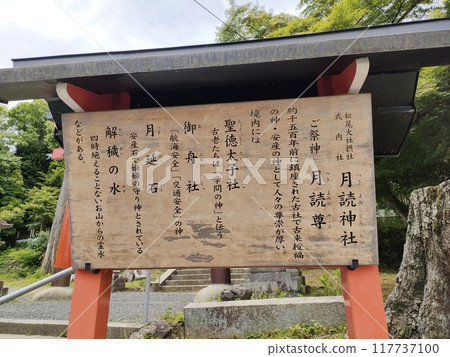 松尾大社摂社
式内社
月読神社
ご祭神 月読尊
約千五百年前に鎮座された古社で古来授福
の神・安産の神として人々の尊崇が厚い。
境内には
聖徳太子社
古老たちは「学問の神」と伝う
御舟社
「航海安全」「交通安全」の神
月延石
安産を守り神とされている
解穢の水
四時絶えることないお山からの霊水
などがある。
PIXTA
pixta.jp - 117737100